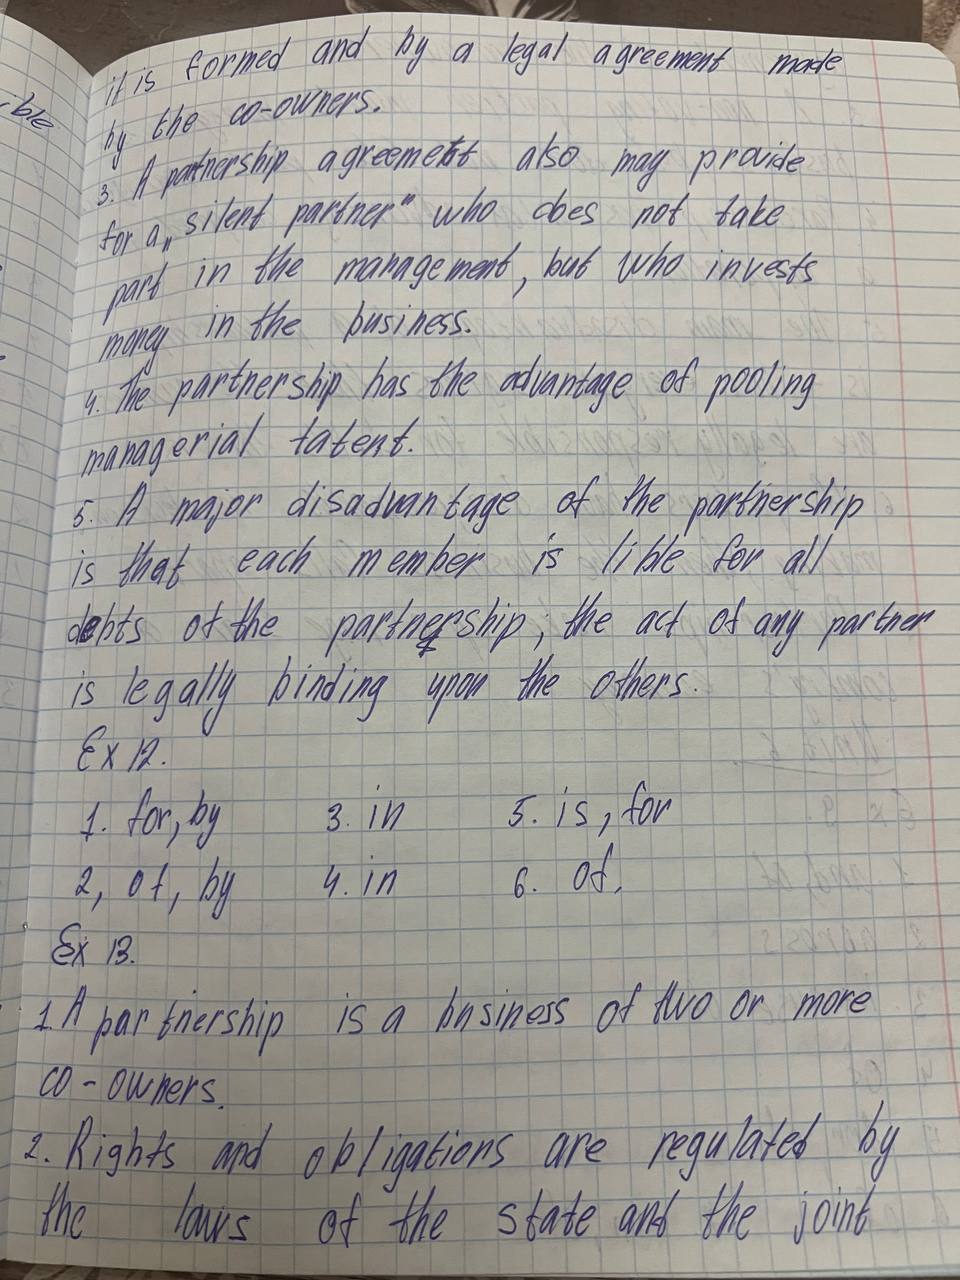 ible
it is formed and by a legal agreement made
by the co-owners.
3. A partnership agreement also may provide
for a „silent partner" who does not take
part in the management, but who invests
money in the business.
4. The partnership has the advantage of pooling
managerial talent.
5. A major disadvantage of the partnership
is that each member is lible for all
debts of the partnership; the act of any partner
is legally binding upon the others.
Ex 12.
1. for, by 3. in 5. is, for
2, of, by 4. in 6. of.
Ex 13.
1. A partnership is a business of two or more
co-owners.
2. Rights and obligations are regulated by
the laws of the state and the joint